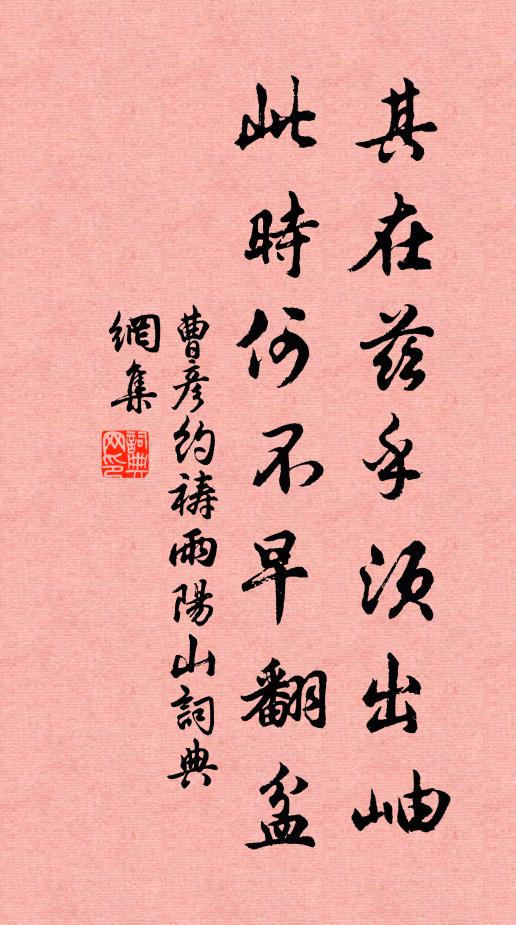 其在兹乎須出岫
此時何不早翻盆
曹彦約禱雨陽山詞典
網集
詞典
網印